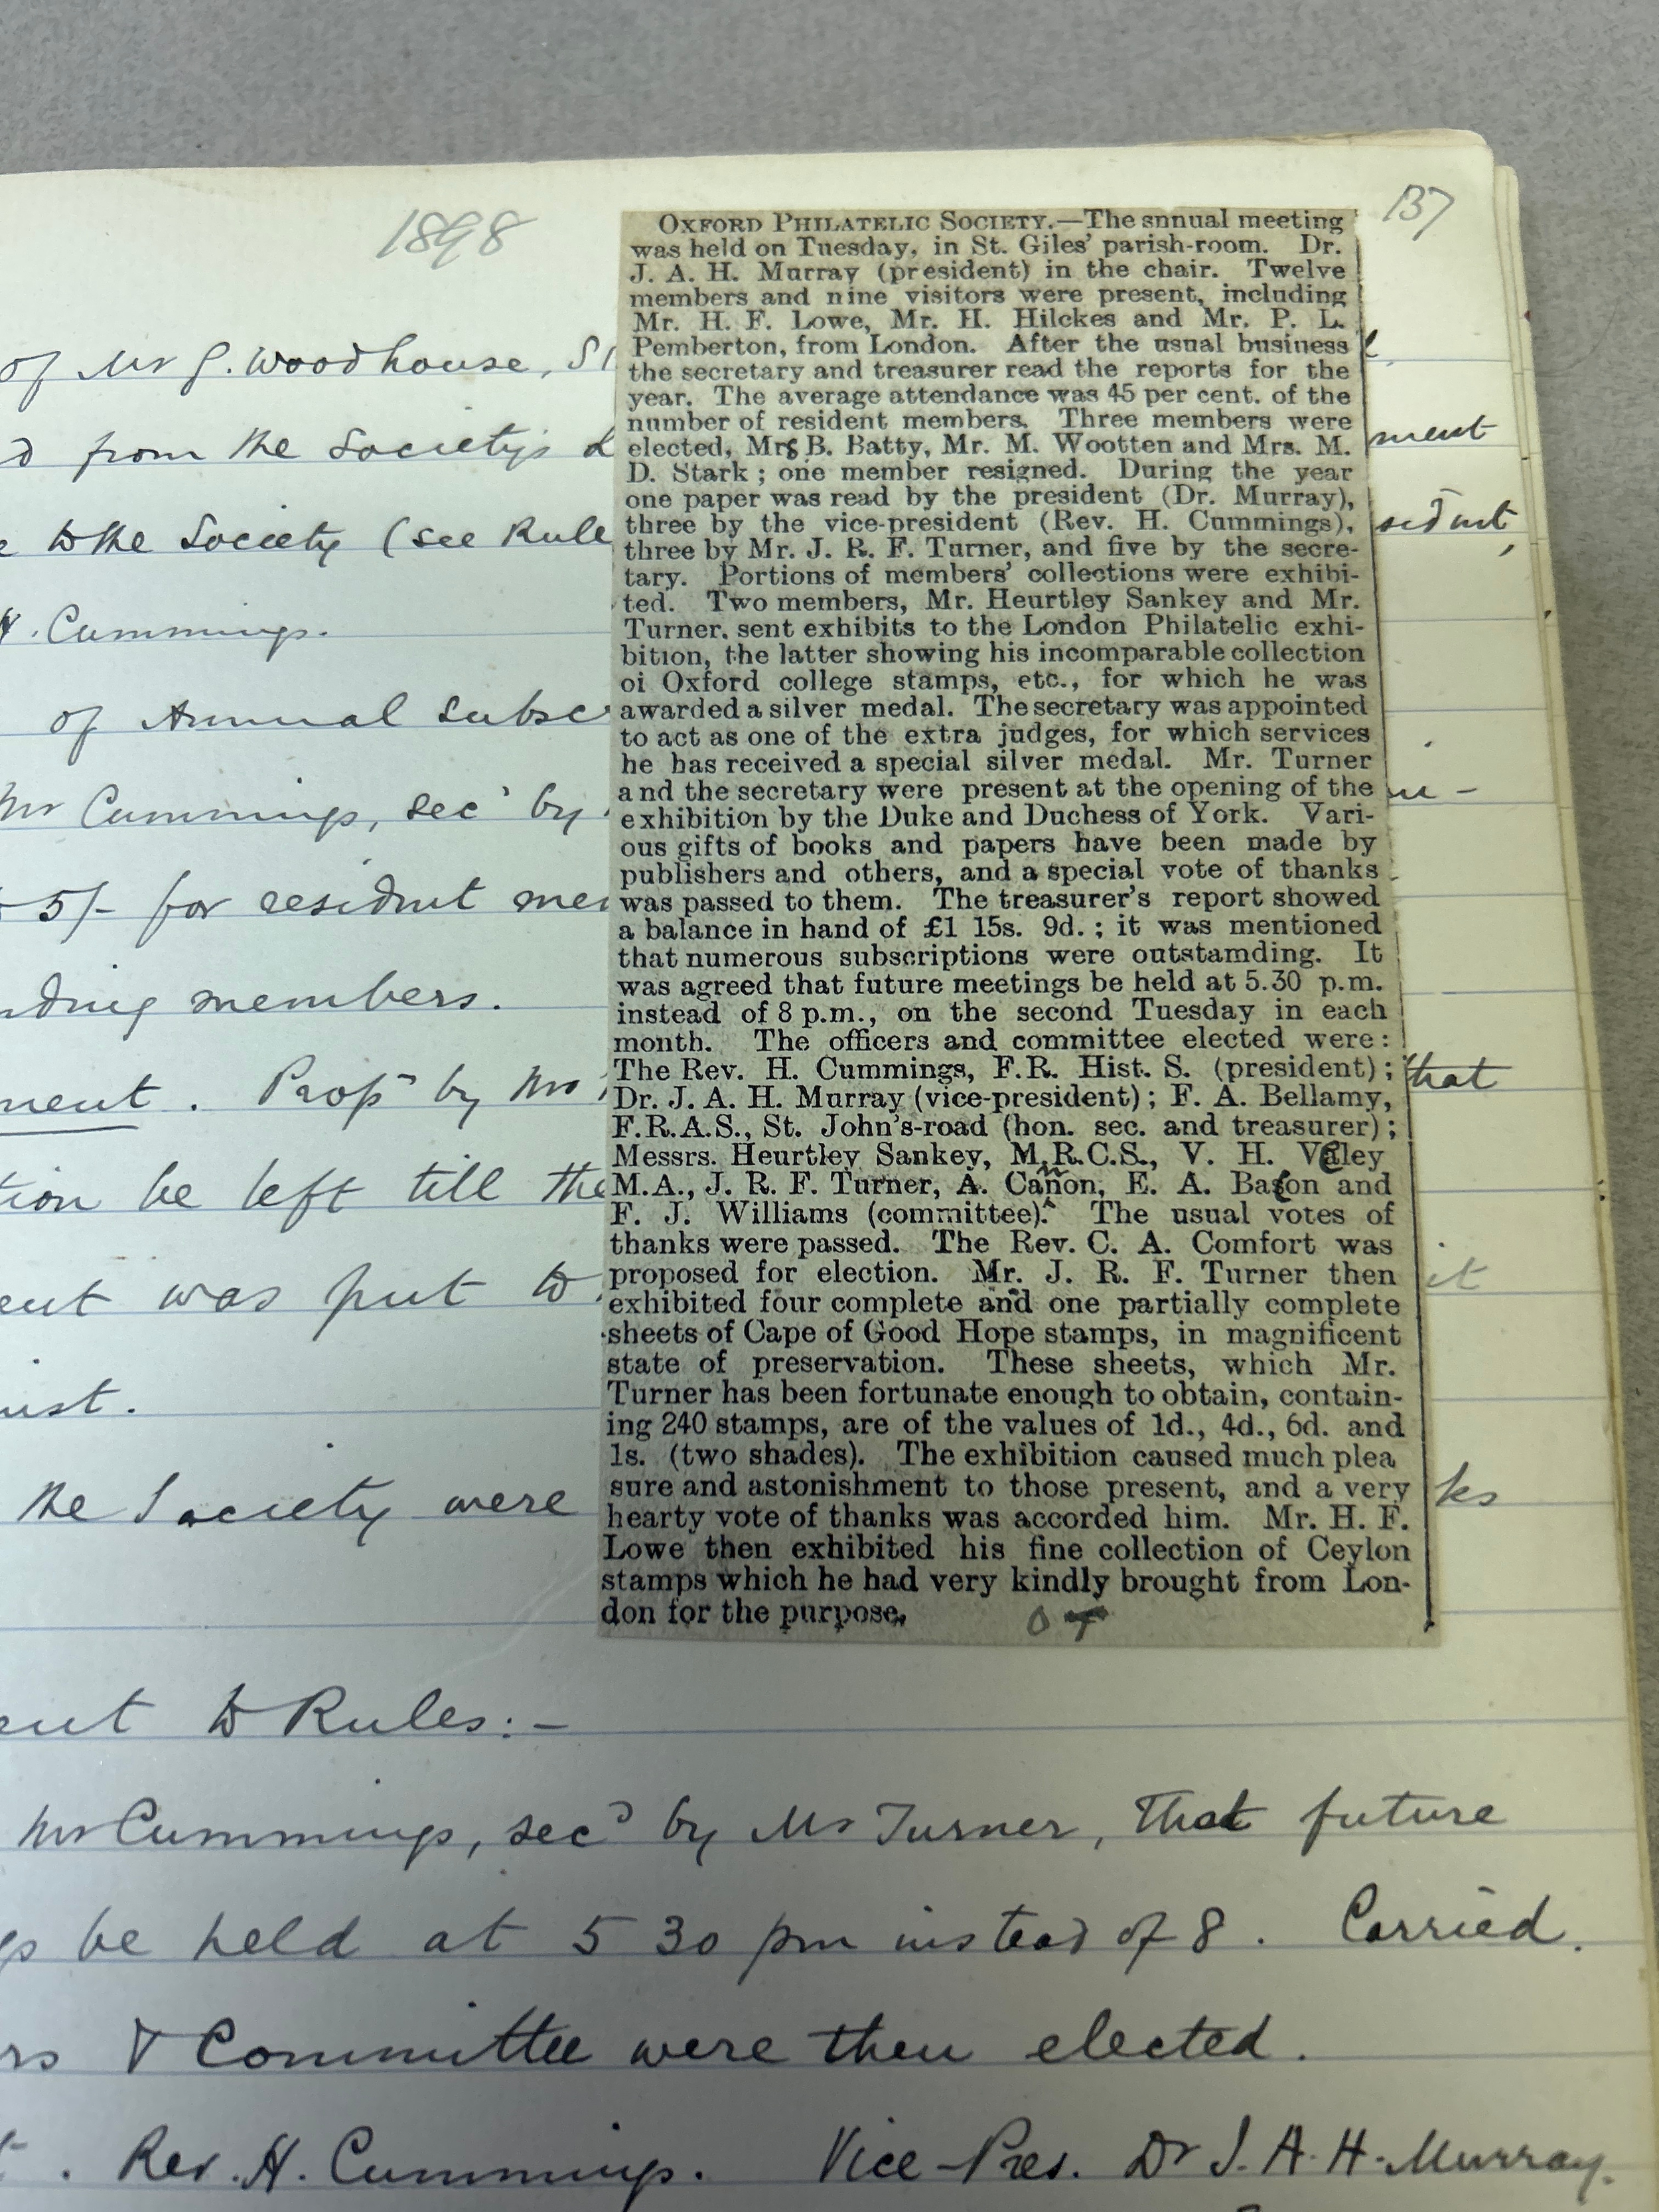 1898
137
OXFORD PHILATELIC SOCIETY.—The snnual meeting
was held on Tuesday, in St. Giles' parish-room. Dr.
J. A. H. Murray (president) in the chair. Twelve
members and nine visitors were present, including
Mr. H. F. Lowe, Mr. H. Hilckes and Mr. P. L.
Pemberton, from London. After the usual business
the secretary and treasurer read the reports for the
year. The average attendance was 45 per cent. of the
number of resident members. Three members were
elected, Mrs B. Batty, Mr. M. Wootten and Mrs. M.
D. Stark ; one member resigned. During the year
one paper was read by the president (Dr. Murray),
three by the vice-president (Rev. H. Cummings),
three by Mr. J. R. F. Turner, and five by the secre-
tary. Portions of members' collections were exhibi-
ted. Two members, Mr. Heurtley Sankey and Mr.
Turner. sent exhibits to the London Philatelic exhi-
bition, the latter showing his incomparable collection
oi Oxford college stamps, etc., for which he was
awarded a silver medal. The secretary was appointed
to act as one of the extra judges, for which services
he has received a special silver medal. Mr. Turner
and the secretary were present at the opening of the
exhibition by the Duke and Duchess of York. Vari-
ous gifts of books and papers have been made by
publishers and others, and a special vote of thanks
was passed to them. The treasurer's report showed
a balance in hand of £1 15s. 9d. ; it was mentioned
that numerous subscriptions were outstamding. It
was agreed that future meetings be held at 5.30 p.m.
instead of 8 p.m., on the second Tuesday in each
month. The officers and committee elected were :
The Rev. H. Cummings, F.R. Hist. S. (president) ;
Dr. J. A. H. Murray (vice-president) ; F. A. Bellamy,
F.R.A.S., St. John's-road (hon. sec. and treasurer) ;
Messrs. Heurtley Sankey, M.R.C.S., V. H. Veley
M.A., J. R. F. Turner, A. Cannon, E. A. Bacon and
F. J. Williams (committee). The usual votes of
thanks were passed. The Rev. C. A. Comfort was
proposed for election. Mr. J. R. F. Turner then
exhibited four complete and one partially complete
sheets of Cape of Good Hope stamps, in magnificent
state of preservation. These sheets, which Mr.
Turner has been fortunate enough to obtain, contain-
ing 240 stamps, are of the values of 1d., 4d., 6d. and
1s. (two shades). The exhibition caused much plea
sure and astonishment to those present, and a very
hearty vote of thanks was accorded him. Mr. H. F.
Lowe then exhibited his fine collection of Ceylon
stamps which he had very kindly brought from Lon-
don for the purpose,
of Mr G. Woodhouse,
from the Society's
ment
to the Society (see Rule
sident,
H. Cummings.
of Annual Subsc
Mr Cummings, secd by
5/- for resident
members.
ment. Propd by Mr
that
tion be left till the
ent was put to
it
the Society were
ks
ent to Rules:-
Mr Cummings, secd by Mr Turner, that future
be held at 5 30 pm instead of 8. Carried.
rs & Committee were then elected.
Rev. H. Cummings. Vice-Pres. Dr J. A. H. Murray.